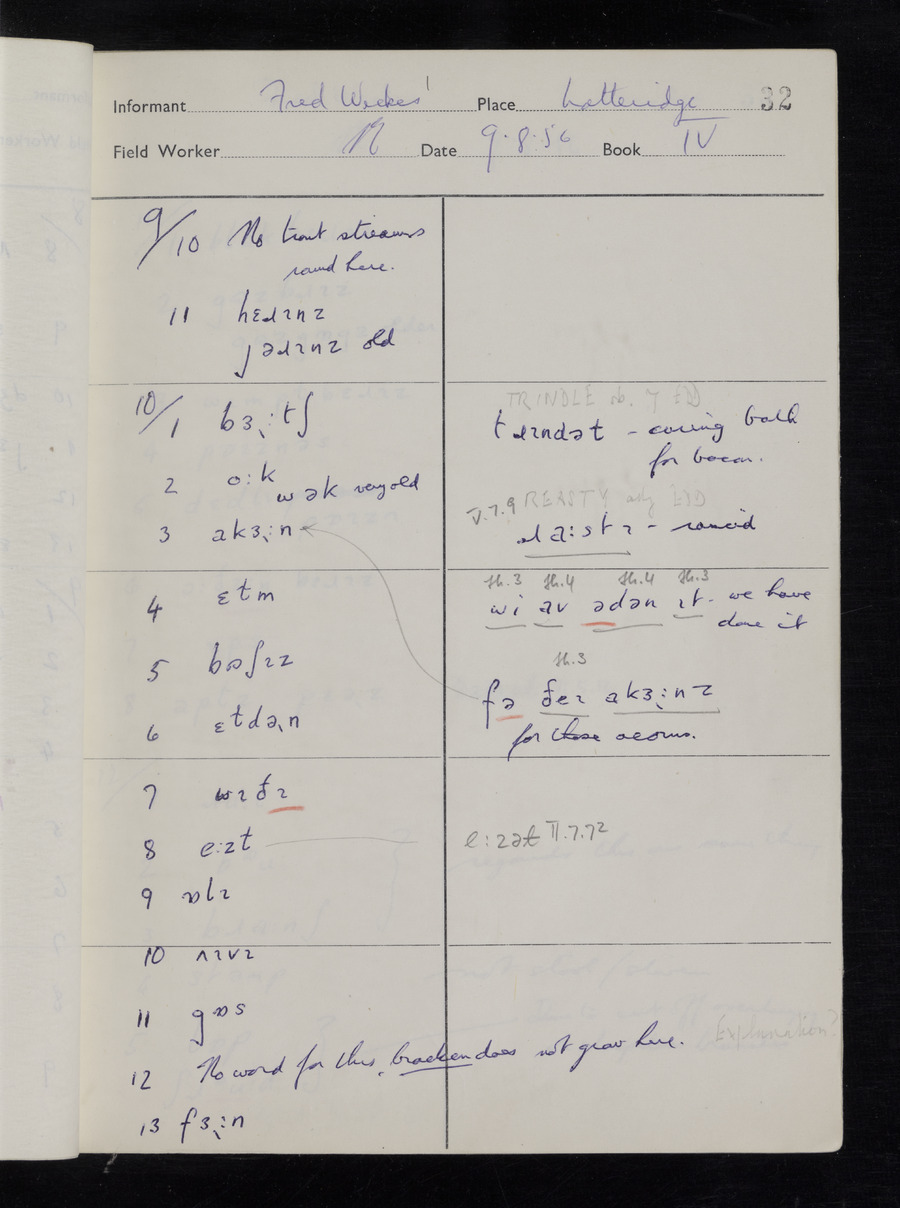 Informant Fred Weekes' Place Latteridge 32
Field Worker Date 9.8.56 Book IV
9/10 No trout streams
round here.
11 hɛɹɪnz
jəɹɪnz old
10/1 bɜ˞:tʃ
2 o:k
wək very old
3 akɜ˞:n
4 ɛtm
5 bɒʃɪz
6 ɛtdə˞n
7 wɪðɪ
8 e:zt
9 ɒlɪ
10 ʌɪvɪ
11 gɒs
12 No word for this, bracken does not grow here. Explanation?
13 fɜ˞:n
TRINDLE sb. 7 EDD
tɹɪndət - curing bath
for bacon.
V.7.9 REASTY adj EDD
ɹa:stɪ - rancid
sh.3 sh.4 sh.4 sh.3
wi av ədən ɪt - we have
done it
sh.3
fə ðeɪ akɜ˞:nz
for those acorns.
e:zət II.7.72